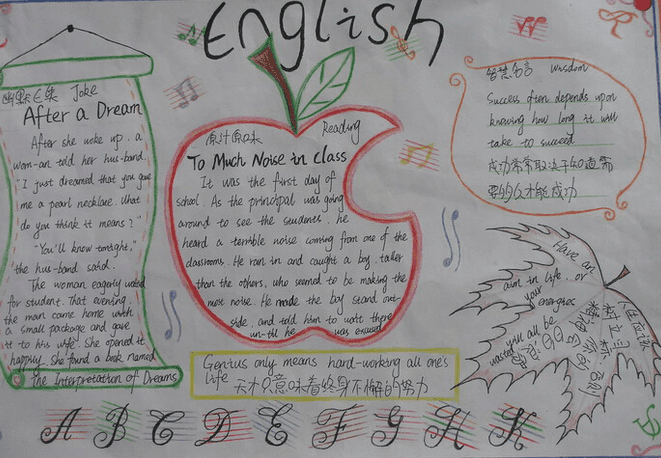 English
幽默一笑 Joke
After a Dream
After she woke up, a
wom-an told her hus-band.
"I just dreamed that you gave
me a pearl necklace. What
do you think it means?"
"You'll know tonight,"
the hus-band said.
The woman eagerly
for student. That evening,
the man came home with
a small package and gave
it to his wife. She opened it
happily. She found a book named
the Interpretation of Dreams
原汁原味 Reading
To Much Noise in Class
It was the first day of
school. As the principal was going
around to see the students, he
heard a terrible noise coming from one of the
classrooms. He ran in and caught a boy, taller
than the others, who seemed to be making the
most noise. He made the boy stand out-
side, and told him to wait there
un-till he was excused
Genius only means hard-working all one's
life
天才只意味着终身不懈的努力
智慧名言 Wisdom
Success often depends upon
knowing how long it will
take to succeed
成功常常取决于知道需
要多久才能成功
Have an
aim in life, or
your energies
will all be
wasted
人生应该
树立目标
否则你的
精力会白白
浪费
A B C D E F G H K